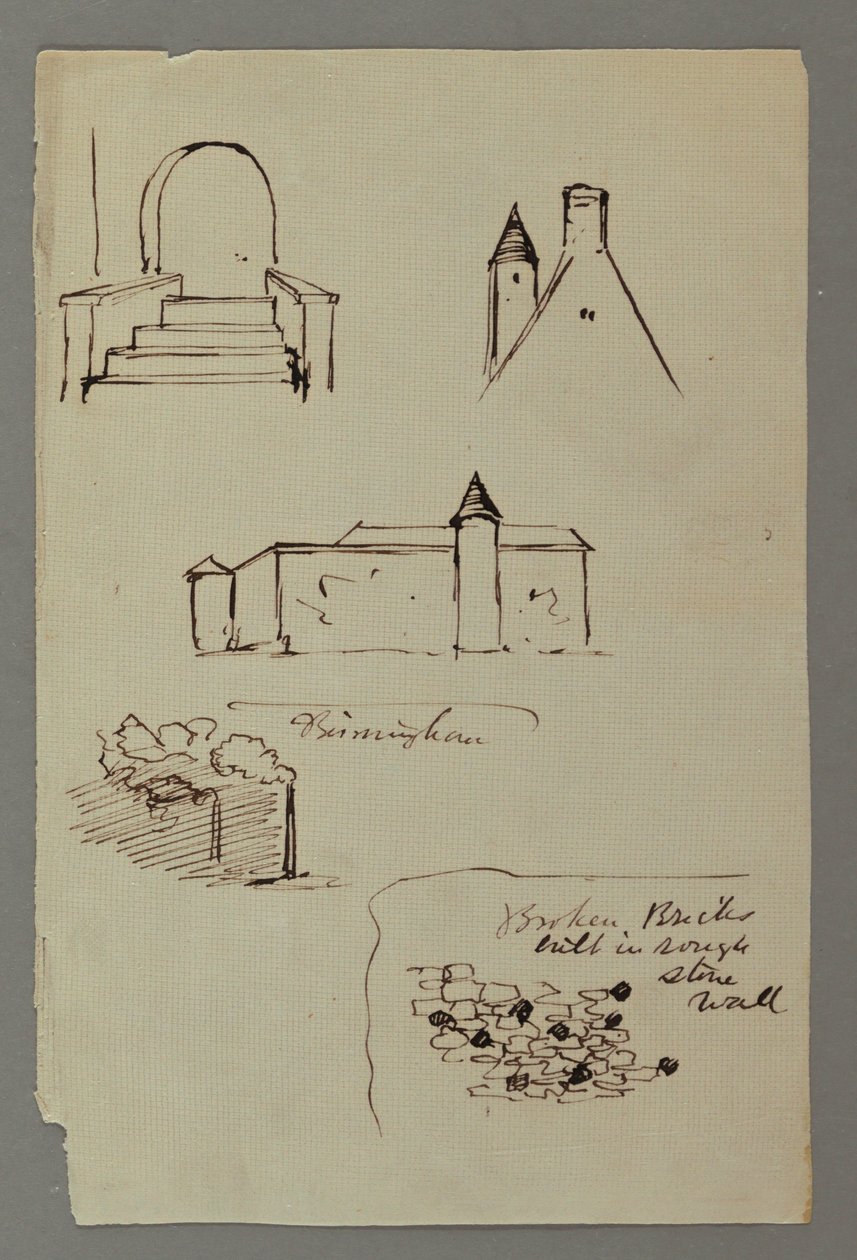 Birmingham
Broken Bricks
built in rough
stone
wall